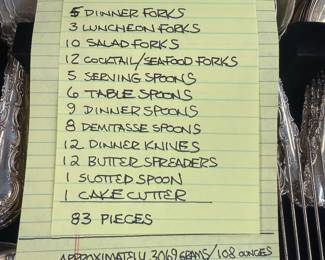 5 DINNER FORKS
3 LUNCHEON FORKS
10 SALAD FORKS
12 COCKTAIL/SEAFOOD FORKS
5 SERVING SPOONS
6 TABLE SPOONS
9 DINNER SPOONS
8 DEMITASSE SPOONS
12 DINNER KNIVES
12 BUTTER SPREADERS
1 SLOTTED SPOON
1 CAKE CUTTER
83 PIECES
APPROXIMATELY 3069 GRAMS/108 OUNCES